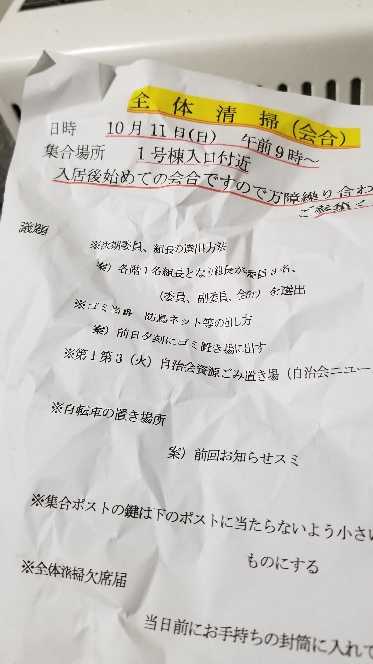 全 体 清 掃（会合）
日時 10月11日(日) 午前9時～
集合場所 1号棟入口付近
入居後始めての会合ですので万障繰り合わ
議題
※次期委員、組長の選出方法
案）各階1名組長となり組長が
（委員、副委員、会計）を選出
※ゴミ当番 防鳥ネット等の出し方
案）前日夕刻にゴミ置き場に出す
※第1第3（火）自治会資源ごみ置き場（自治会ニュー
※自転車の置き場所
案）前回お知らせスミ
※集合ポストの鍵は下のポストに当たらないよう小さい
ものにする
※全体清掃欠席届
当日前にお手持ちの封筒に入れて